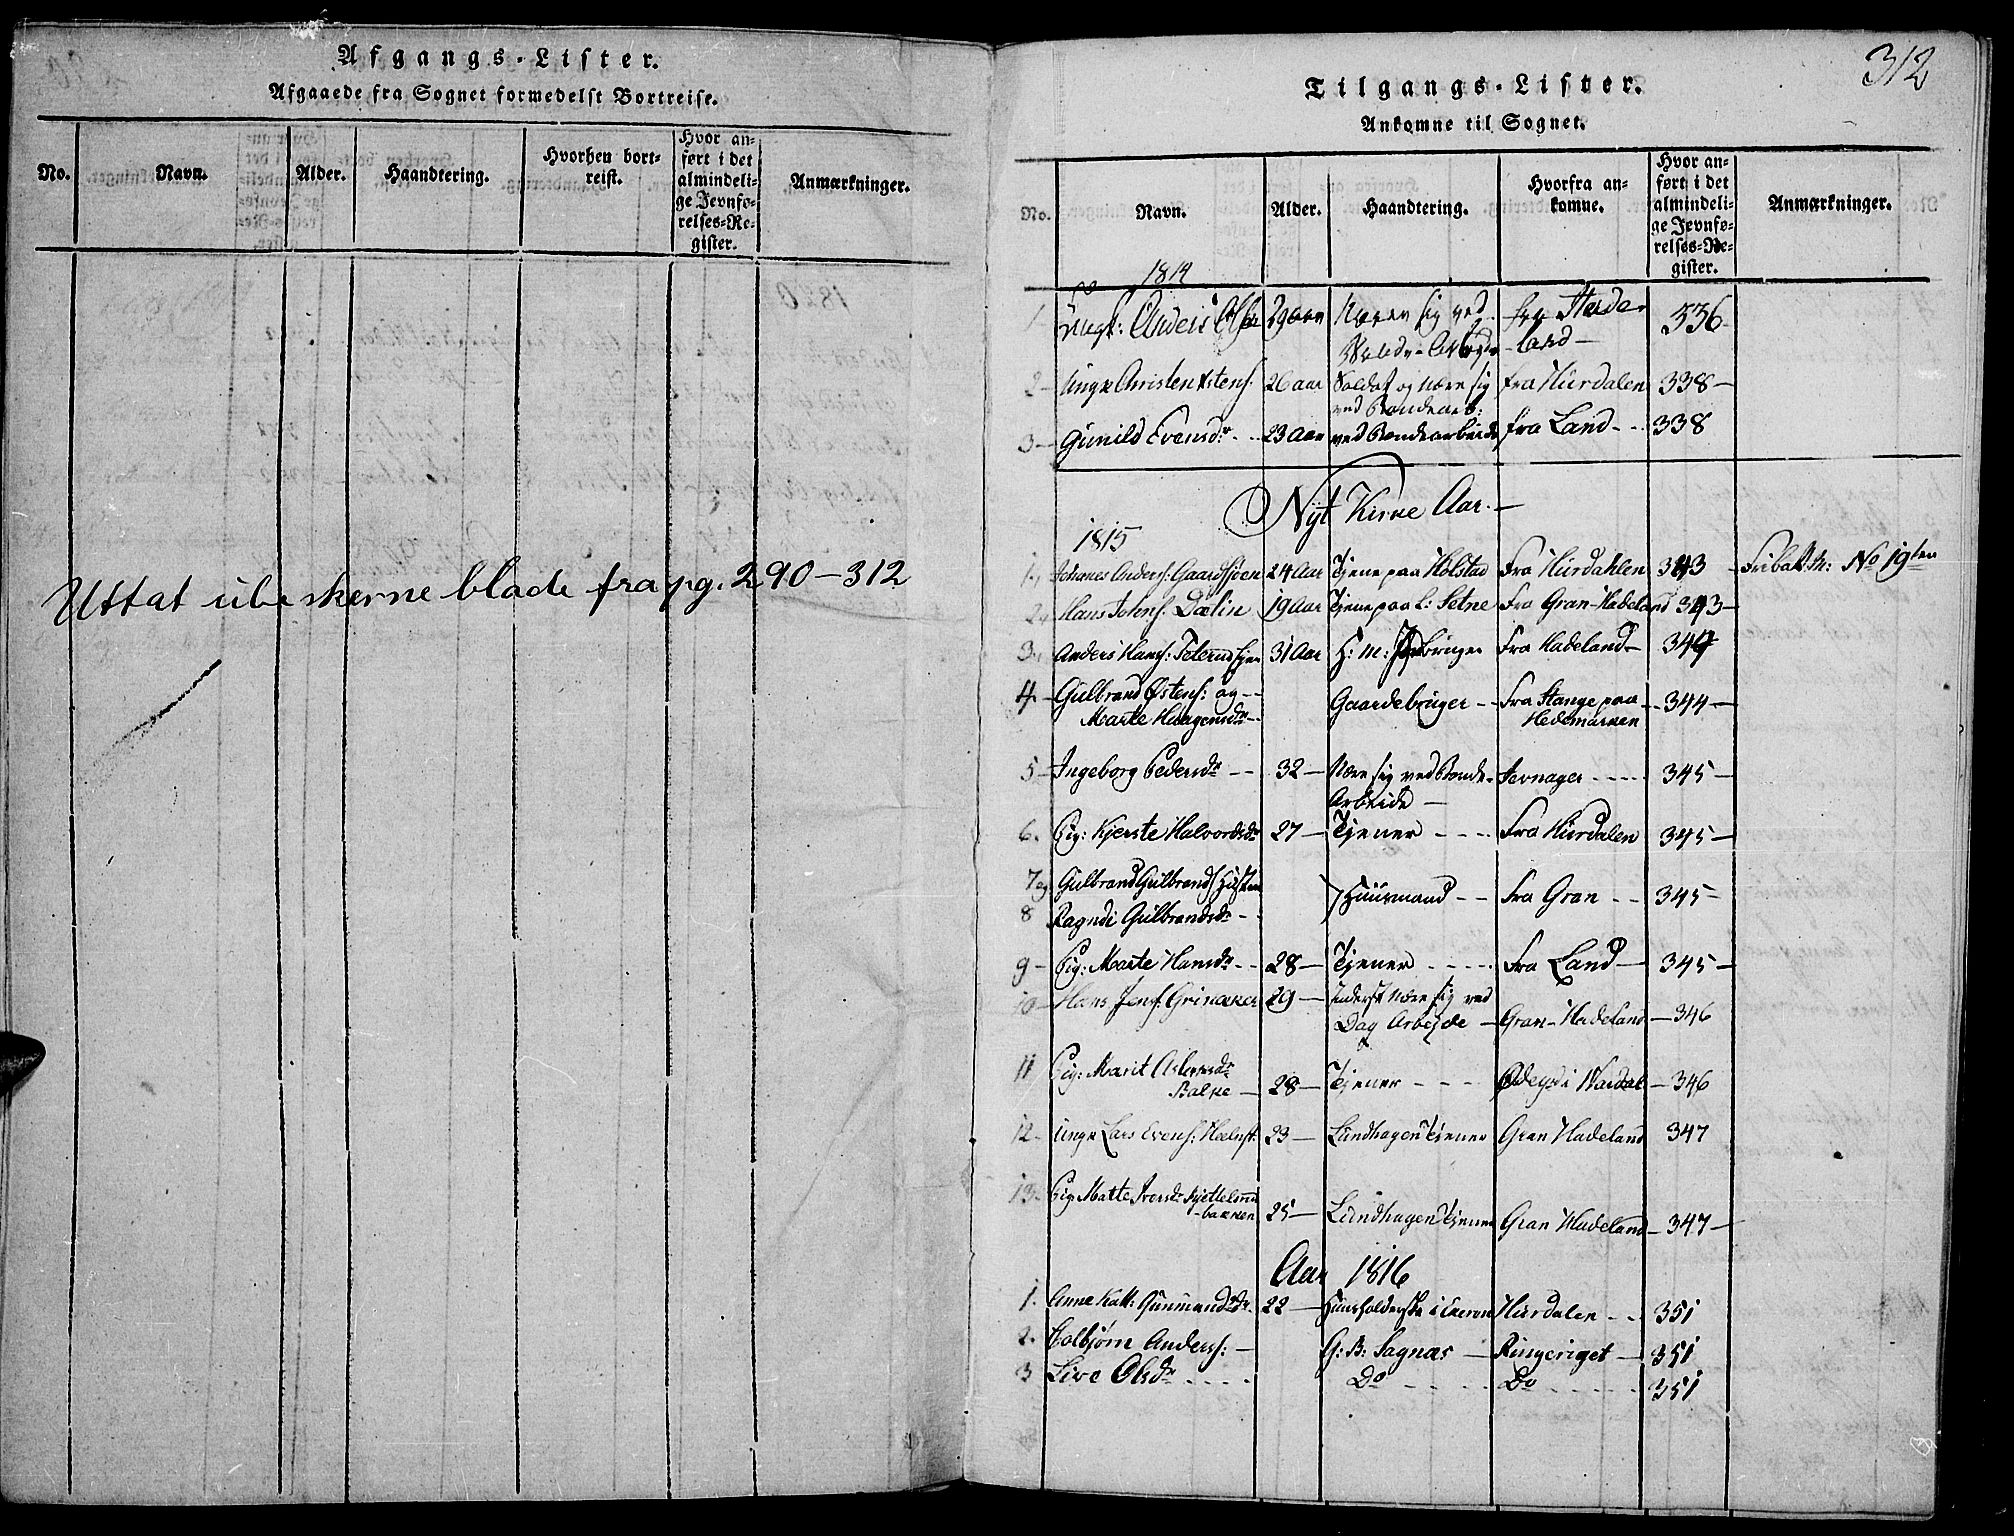 Afgangs-Lister.
Afgaaede fra Sognet formedelst Bortreise.
No. Navn. Alder. Haandtering. Hvorhen bortreist. Hvor anført i det almindelige Jevnførelses-Register. Anmærkninger.
Uttat ubeskrevne blade fra pg. 290-312
312
Tilgangs-Lister.
Ankomne til Sognet.
No. Navn. Alder. Haandtering. Hvorfra ankomne. Hvor anført i det almindelige Jevnførelses-Register. Anmærkninger.
1814
1 Anders 29 Aar Nærer sig ved fra Hadeland 336
2 Ungk Christen Østens: 26 aar Soldat og nærer sig ved Bondearb: fra Hurdalen 338
3 Gunild Evensdr 23 Aar ved Bondearbeide fra Land 338
Nyt Kirke Aar
1815
1 Johanes Anders: Gaardsjøen 24 Aar Tjene paa Holstad Fra Hurdahlen 343 No 19ten
2 Hans Johns: Dælin 19 Aar Tjene paa L: Setne Fra Gran Hadeland 343
3 Anders Hans: 31 Aar Fra Hadeland 344
4 Gulbrand Østens: og Marte Haagensdr Gaardebruger Fra Stange paa Hedemarken 344
5 Ingeborg Pedersdr 32 Nære sig ved Bonde Arbeide Jevnager 345
6. Pig: Kjerste Halvordsdr 27 Tjener Fra Hurdalen 345
7 og Gulbrand Gulbrands:
8 Ragndi Gulbrandsdr Huusmand Fra Gran 345
9 Pig: Marte Hansdr 28 Tjener Fra Land 345
10 Hans Jens: Grinaker 29 Inderst nære sig ved Dag Arbejde Gran Hadeland 346
11 Pig: Marit Balke 28 Tjener i Wardal 346
12 Ungk Lars Evens: 23 Lundhagen Tjener Gran Hadeland 347
13 Pig: Matte Iversdr 25 Lundhagen Tjener Gran Hadeland 347
Aar 1816
1. Anne Katt: Gunmundsdr 22 Huusholderske i Hurdalen 351
2. Tolbjørn Anders: G: B: Sagnæs Ringeriget 351
3 Live Olsdr Do Do 351